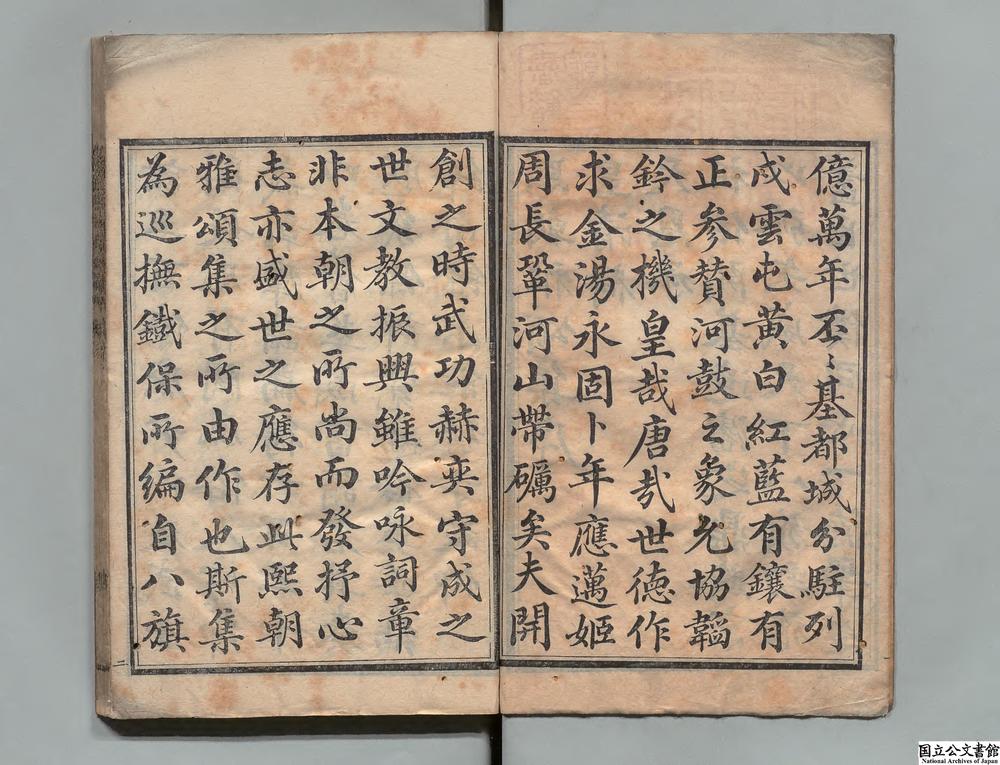 億萬年丕〻基都城分駐列
戍雲屯黃白紅藍有鑲有
正参賛河鼓之象允協韜
鈐之機皇哉唐哉世德作
求金湯永固卜年應邁姬
周長鞏河山帶礪矣夫開
創之時武功赫奕守成之
世文教振興雖吟咏詞章
非本朝之所尚而發抒心
志亦盛世之應存此熙朝
雅頌集之所由作也斯集
為巡撫鐵保所編自八旗
国立公文書館
National Archives of Japan